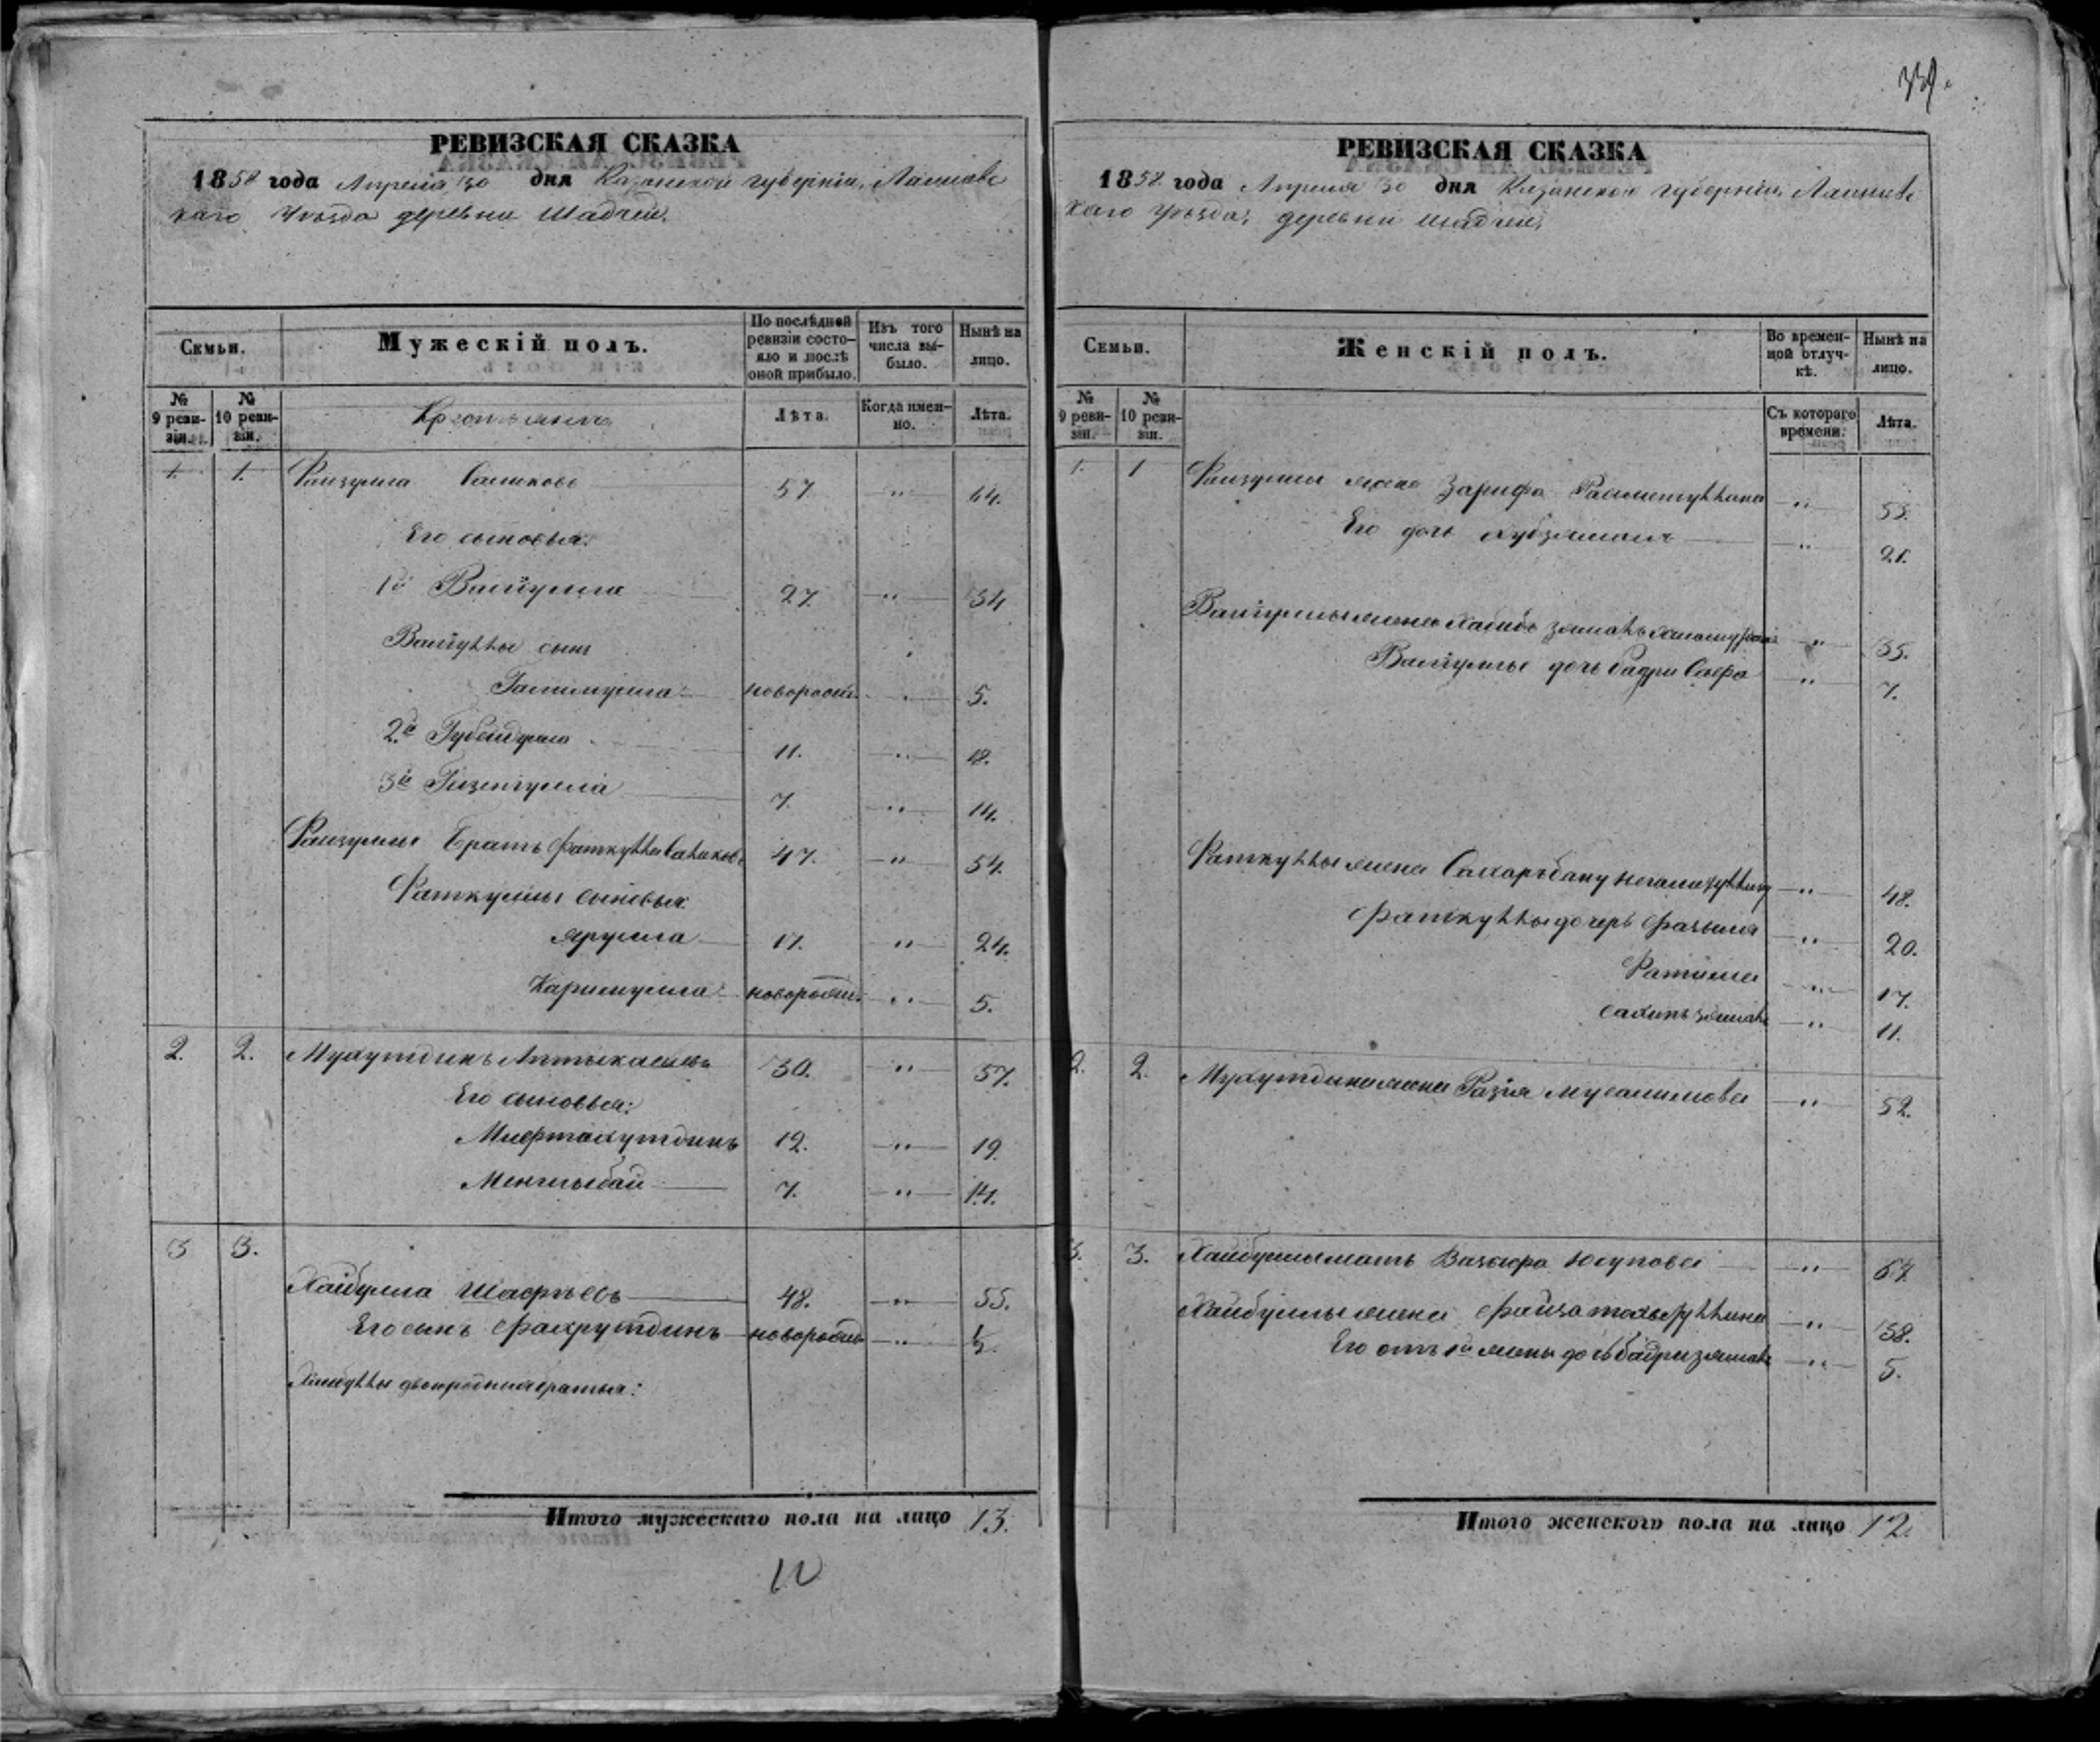 339.
РЕВИЗСКАЯ СКАЗКА
1858 года Апреля 30 дня Казанской губерніи, Лаишевс
каго уѣзда деревни Шадчей.
Семьи.
Мужескій полъ.
По послѣдней ревизіи состояло и послѣ оной прибыло.
Изъ того числа выбыло.
Нынѣ на лицо.
№ 9 ревизіи.
№ 10 ревизіи.
Крестьяне
Лѣта.
Когда именно.
Лѣта.
1. 1. Файзулла Саликовъ 57 " 64.
Его сыновья:
1й Валиулла 27. " 34
Валиуллы сынъ
Галимулла новорожд. " 5.
2й Губайдулла 11. " 18.
3й Гизетулла 7. " 14.
Файзуллы братъ Фаткулла Саликовъ 47. " 54.
Фаткуллы сыновья:
Ярулла 17. " 24.
Каримулла новорожд. " 5.
2. 2. Мухутдинъ 50. " 57.
Его сыновья:
Мифтахутдинъ 12. " 19.
Менглыбай 7. " 14.
3 3.
Хайбулла Шафѣевъ 48. " 55.
Его сынъ Фахрутдинъ новорожд. " ½.
Хайбуллы двоюродныя братья:
Итого мужескаго пола на лицо 13.
РЕВИЗСКАЯ СКАЗКА
1858 года Апреля 30 дня Казанской губерніи, Лаишевс
каго уѣзда, деревни Шадчей,
Семьи.
Женскій полъ.
Во временной отлучкѣ.
Нынѣ на лицо.
№ 9 ревизіи.
№ 10 ревизіи.
Съ котораго времени.
Лѣта.
1. 1 Файзуллы жена Зарифа " 55.
Его дочь Хубзямалъ " 21.
Валиуллы жена " 35.
Валиуллы дочь Бадри Сафа " 7.
Фаткуллы жена Сахарьбану " 48.
Фаткуллы дочерь " 20.
Фатима " 17.
" 11.
2. 2. Мухутдина жена Разія Мусалимова " 52.
3. 3. Хайбуллы мать Юсупова " 67.
Хайбуллы жена " 38.
Его отъ 1й жены дочь Бадризямалъ " 5.
Итого женскаго пола на лицо 12.